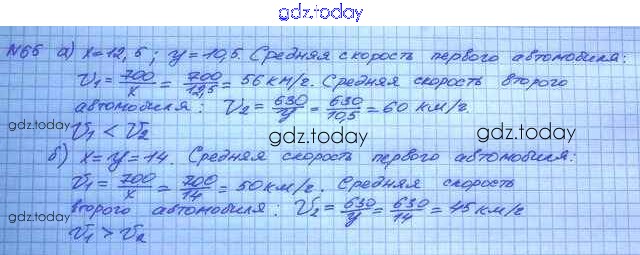 gdz.today
№65 а) x=12,5; y=10,5. Средняя скорость первого автомобиля:
V₁ = 700/x = 700/12,5 = 56 км/г. Средняя скорость второго
автомобиля: V₂ = 630/y = 630/10,5 = 60 км/г.
gdz.today V₁ < V₂ gdz.today gdz.today
б) x=y=14. Средняя скорость первого автомобиля:
V₁ = 700/x = 700/14 = 50 км/г. Средняя скорость
второго автомобиля: V₂ = 630/y = 630/14 = 45 км/г
gdz.today gdz.today gdz.today
V₁ > V₂